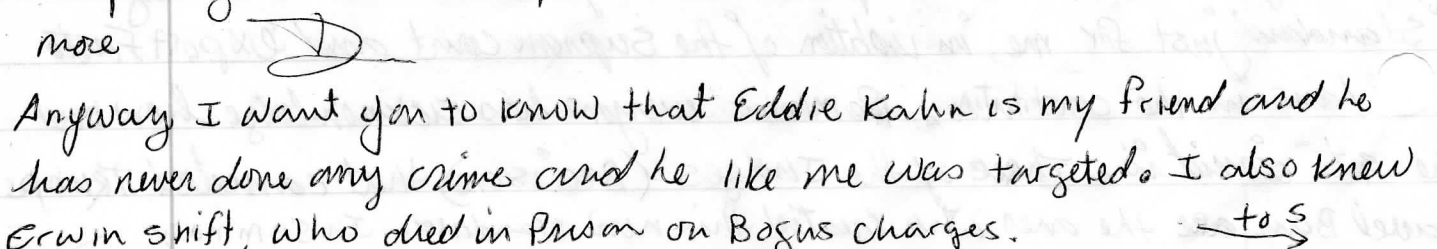 more
Anyway I want you to know that Eddie Kahn is my friend and he
has never done any crime and he like me was targeted. I also knew
Erwin shift, who died in Prison on Bogus charges. to 5